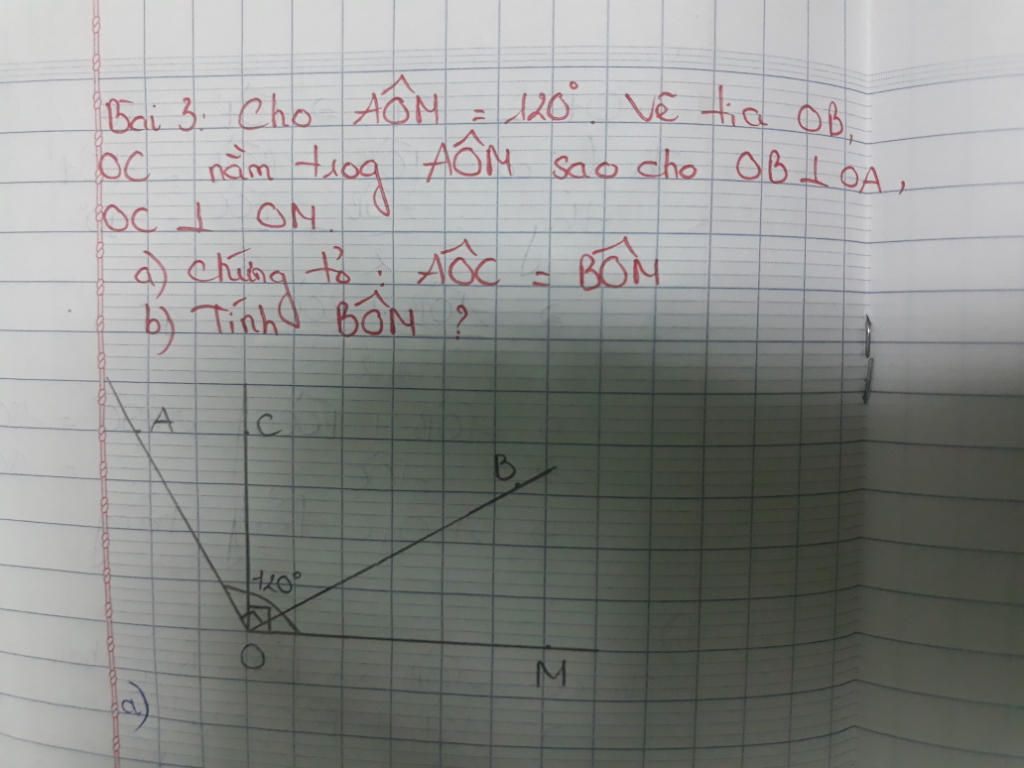 Bài 3: Cho AÔM = 120°. Vẽ tia OB,
OC nằm trog AÔM sao cho OB ⊥ OA,
OC ⊥ OM.
a) Chứng tỏ: AÔC = BÔM
b) Tính BÔM ?
A
C
B
120°
O
M
a)